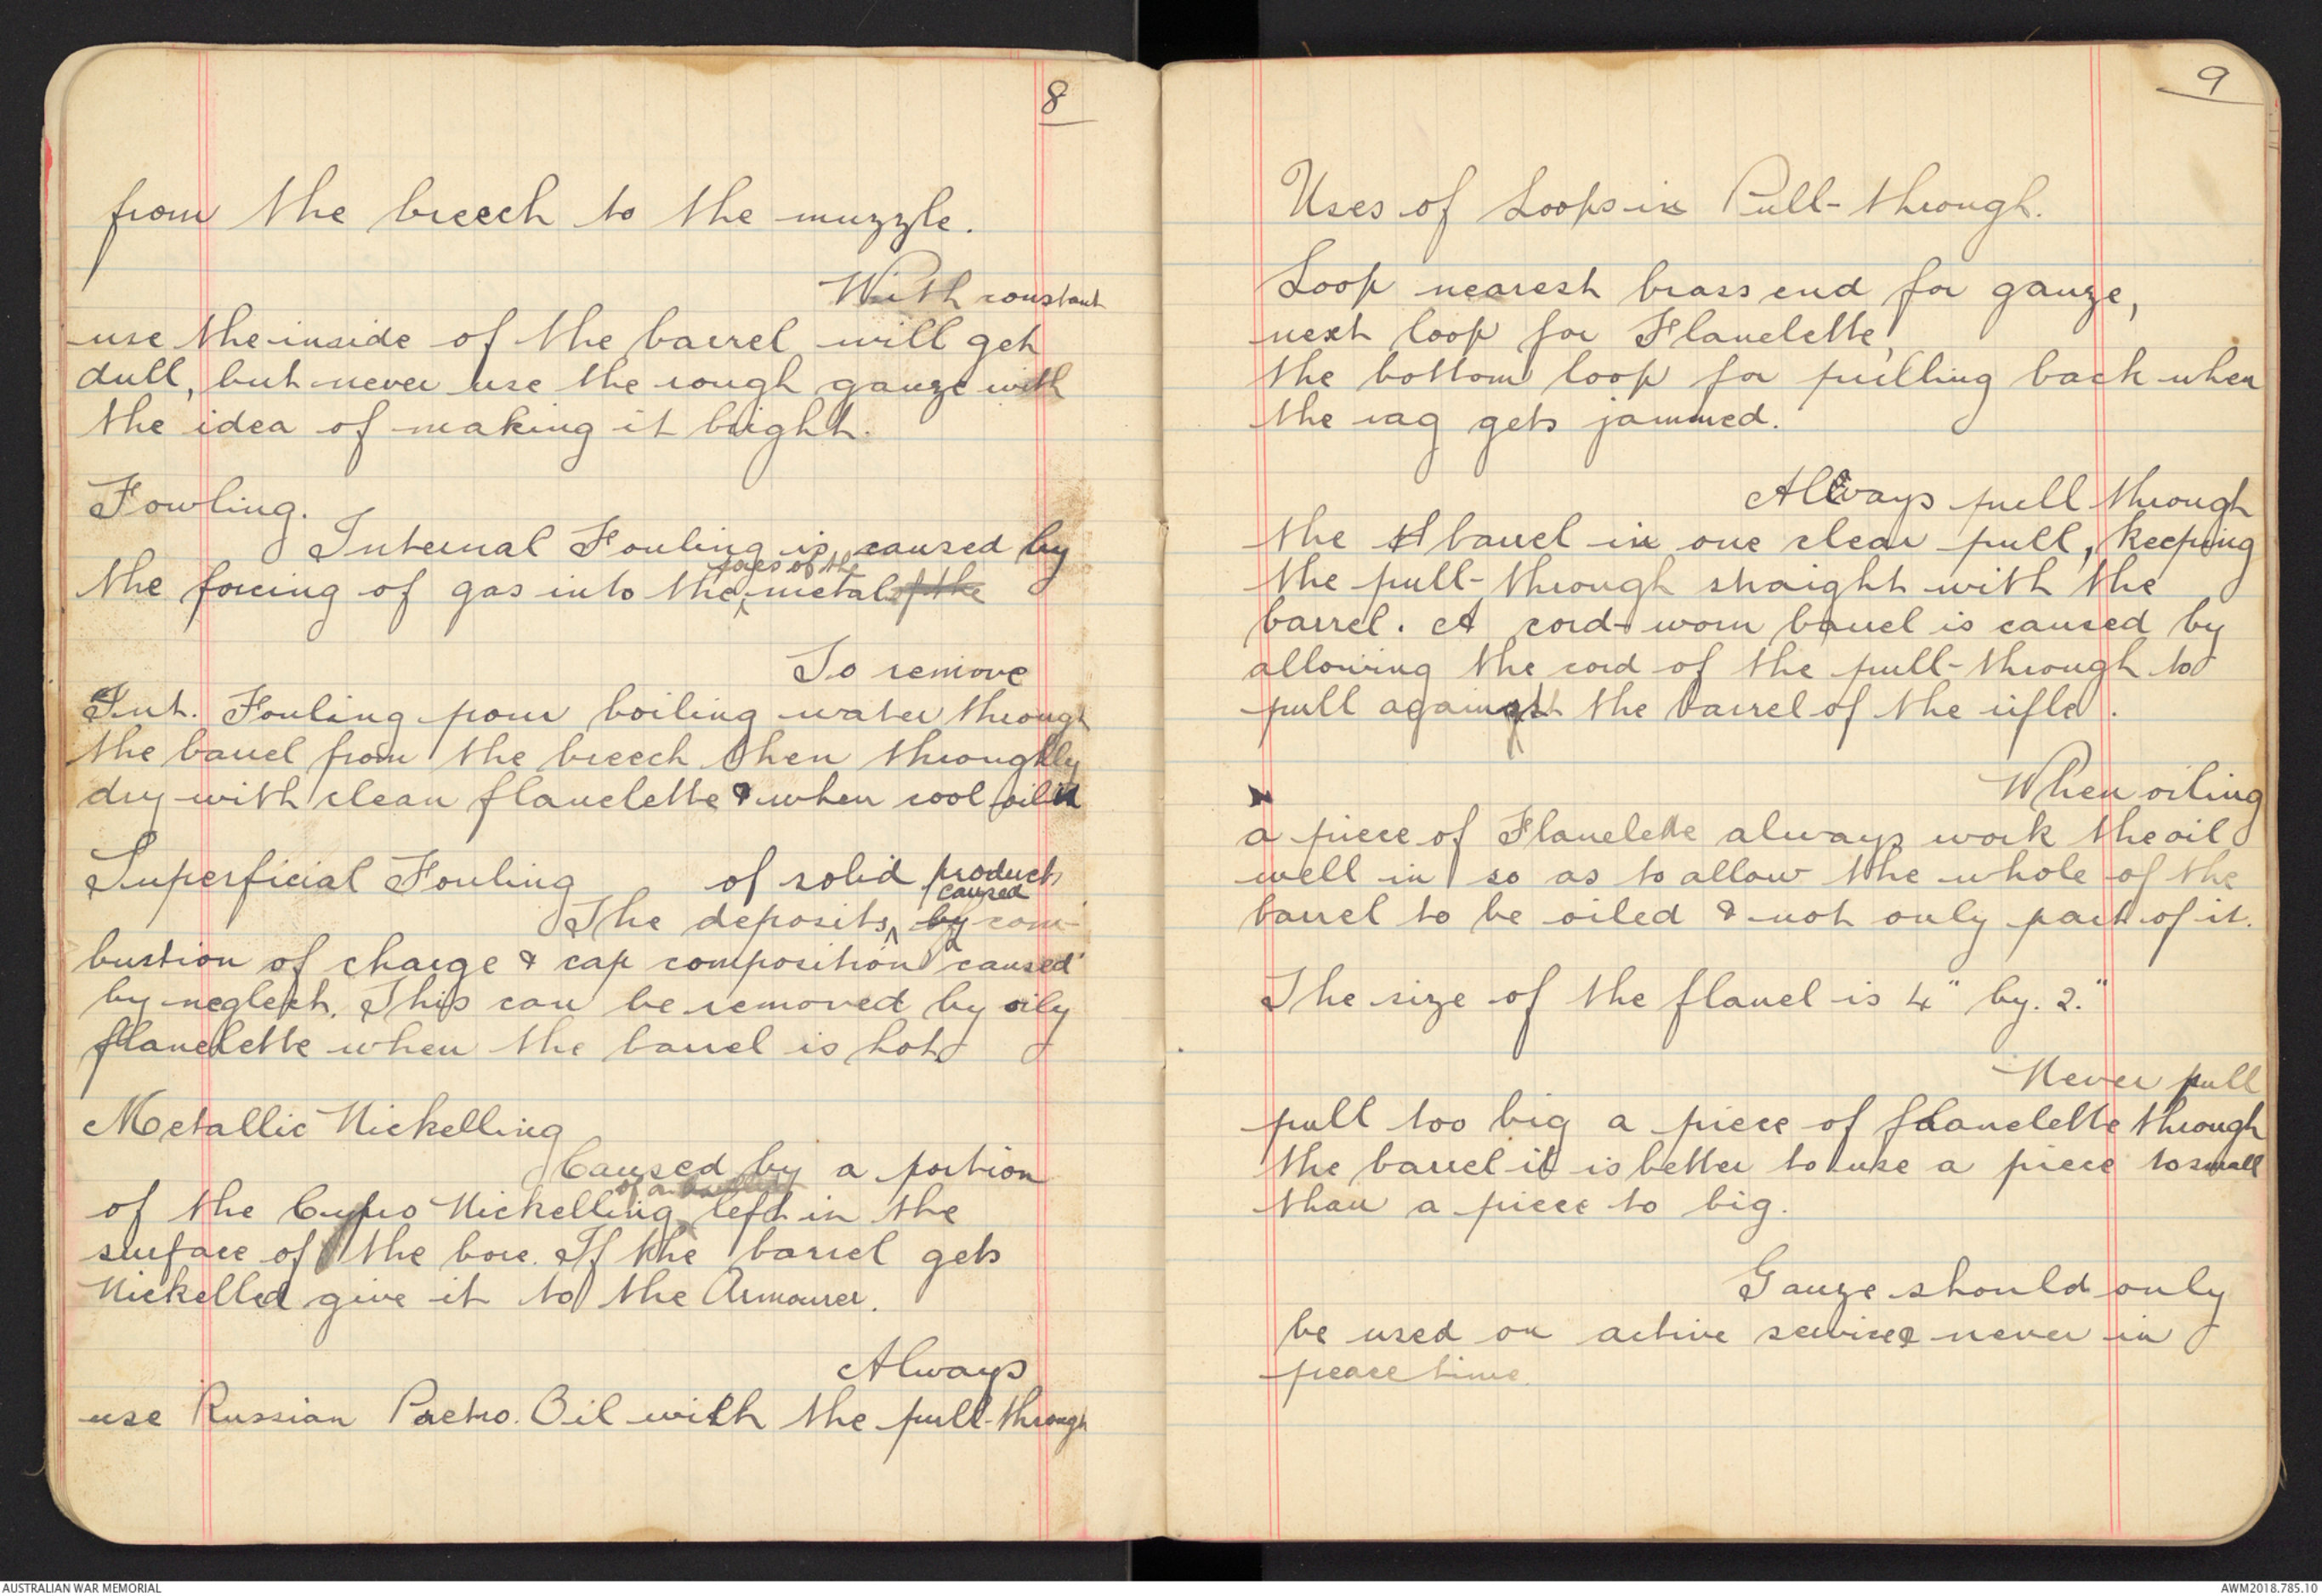 8
from the breech to the muzzle.
With constant
use the inside of the barrel will get
dull, but never use the rough gauze with
the idea of making it bright.
Fowling.
Internal Fouling is caused by
the forcing of gas into the pores of the metal of the
To remove
Int. Fouling pour boiling water through
the barrel from the breech then throughly
dry with clean flanelette & when cool oil it
Superficial Fouling
The deposits of solid products caused by com-
bustion of charge & cap composition & caused
by neglect. This can be removed by oily
flanelette when the barrel is hot
Metallic Nickelling
Caused by a portion
of the Cupro Nickelling of a left in the
surface of the bore. If the barrel gets
Nickelled give it to the Armourer.
Always
use Russian Paetro. Oil with the pull-through
9
Uses of Loops in Pull-through.
Loop nearest brass end for gauze,
next loop for Flanelette,
the bottom loop for pulling back when
the rag gets jammed.
Always pull through
the barrel in one clear pull, keeping
the pull-through straight with the
barrel. A cord-worn barrel is caused by
allowing the cord of the pull-through to
pull against the barrel of the rifle.
When oiling
a piece of Flanelette always work the oil
well in so as to allow the whole of the
barrel to be oiled & not only part of it.
The size of the flanel is 4" by. 2."
Never pull
pull too big a piece of flanelette through
the barrel it is better to use a piece to small
than a piece to big.
Gauze should only
be used on active service & never in
peace time.
AUSTRALIAN WAR MEMORIAL
AWM2018.785.10